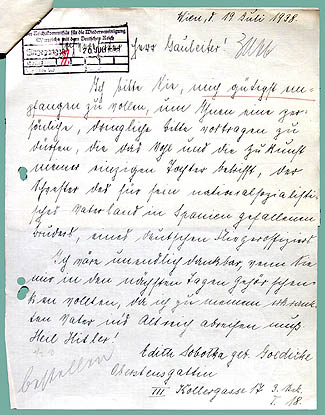 Wien, d. 19. Juli 1938.
Der Reichskommissar für die Wiedervereinigung
Österreichs mit dem Deutschen Reich
20. JULI 1938
Herr Gauleiter!
Ich bitte Sie, mich gütigst em-
pfangen zu wollen, um Ihnen eine per-
sönliche, dringliche Bitte vortragen zu
dürfen, die das Wohl und die Zukunft
meiner einzigen Tochter betrifft, der
Schwester des für sein nationalsozialisti-
sches Vaterland in Spanien gefallenen
Bruders, eines deutschen Fliegeroffiziers.
Ich wäre unendlich dankbar, wenn Sie
mir in den nächsten Tagen Gehör schen-
ken wollten, da ich zu meinem erkrank-
ten Vater ins Altreich abreisen muß.
Heil Hitler!
Edith Sobotka geb. Goedicke
Oberstensgattin
bestellen
III Kollergasse 17 3. Stk.
T. 18.